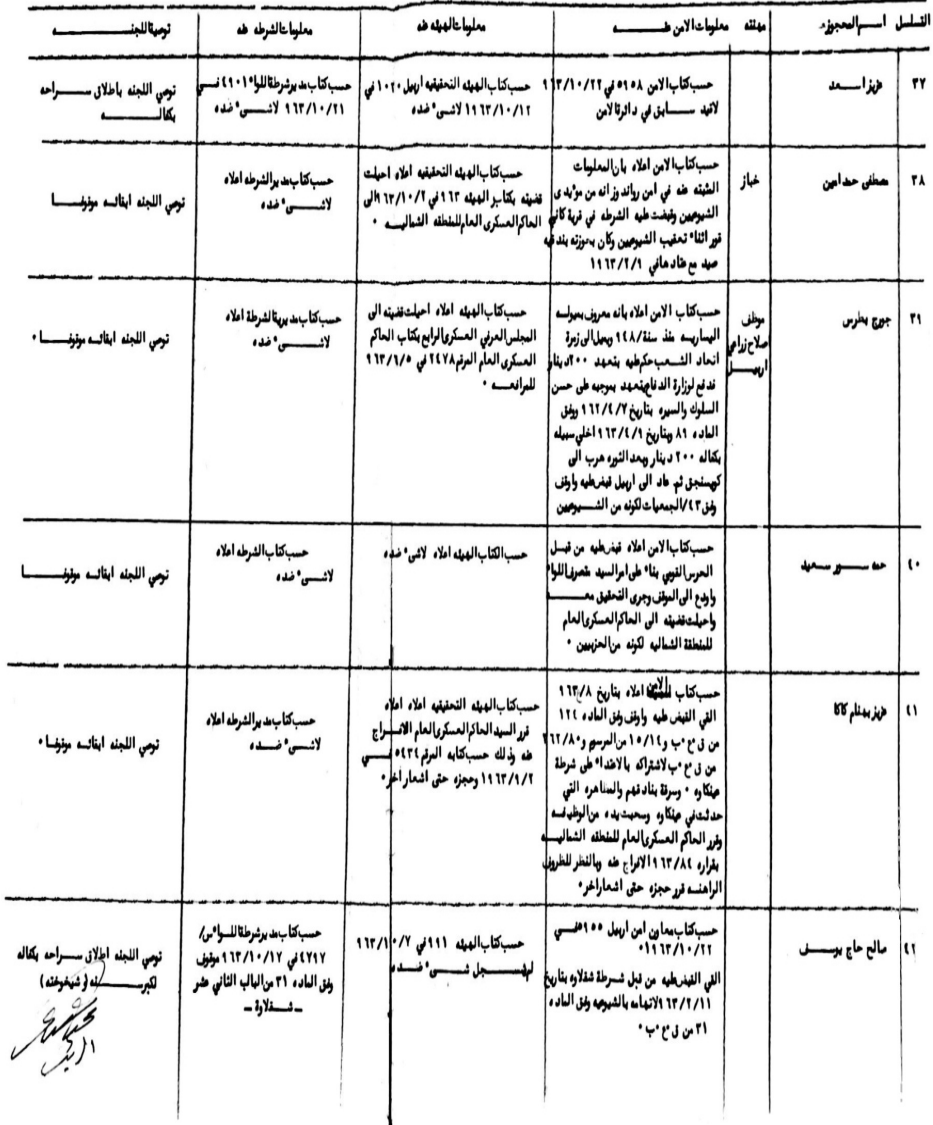 التسلسل اسم المحجوز مهنته معلومات الامن عنه معلومات الهيئه عنه معلومات الشرطه عنه توصية اللجنه
٣٧ عزيز اسعد
حسب كتاب الامن ٥٩٥٨ في ١٩٦٣/١٠/٢٢
لاقيد سابق في دائرة الامن
حسب كتاب الهيئه التحقيقيه اربيل ١٠٢٠ في
١٩٦٣/١٠/١٢ لاشيء ضده
حسب كتاب مدير شرطة اللواء ٤٩٠١ في
١٩٦٣/١٠/٢١ لاشيء ضده
توصي اللجنه باطلاق سراحه
بكفاله
٣٨ مصطفى حمد امين
خباز
حسب كتاب الامن اعلاه بان المعلومات
المثبته عنه في امن رواندوز انه من مؤيدى
الشيوعيين وقبضت عليه الشرطه في قرية كاني
قور اثناء تعقيب الشيوعيين وكان بحوزته بندقيه
صيد مع عتادها في ١٩٦٣/٢/٩
حسب كتاب الهيئه التحقيقيه اعلاه احيلت
قضيته بكتاب الهيئه ١٦٣ في ٩٦٣/١٠/٢ الى
الحاكم العسكرى العام للمنطقه الشماليه ٠
حسب كتاب مدير الشرطه اعلاه
لاشىء ضده
توصي اللجنه ابقائه موقوفا
٣٩ جورج بطرس
موظف
صلاح زراعي
اربيل
حسب كتاب الامن اعلاه بانه معروف بميوله
اليساريه منذ سنة/٩٤٨ ويميل الى زمرة
اتحاد الشعب حكم عليه بتعهد ٢٠٠ دينار
تدفع لوزارة الدفاع يتعهد بموجبه على حسن
السلوك والسيره بتاريخ ٩٦٢/٤/٧ وفق
الماده ٨١ وبتاريخ ٩٦٣/٤/٩ اخلي سبيله
بكفاله ٢٠٠ دينار وبعد الثوره هرب الى
كويسنجق ثم عاد الى اربيل قبض عليه واوقف
وفق ٤٣/الجمعيات لكونه من الشيوعيين
حسب كتاب الهيئه اعلاه احيلت قضيته الى
المجلس العرفي العسكرى الرابع بكتاب الحاكم
العسكرى العام المرقم ٢٤٧٨ في ٩٦٣/٦/٥
للمرافعه ٠
حسب كتاب مديرية الشرطة اعلاه
لاشىء ضده
توصي اللجنه ابقائه موقوفا ٠
٤٠ حمه سور سعيد
حسب كتاب الامن اعلاه قبض عليه من قبل
الحرس القومي بناء على امر السيد متصرف اللواء
واودع الى الموقف وجرى التحقيق معه
واحيلت قضيته الى الحاكم العسكرى العام
للمنطقة الشماليه لكونه من الحزبيين ٠
حسب الكتاب الهيئه اعلاه لاشىء ضده
حسب كتاب الشرطه اعلاه
لاشىء ضده
توصي اللجنه ابقائه موقوفا
٤١ عزيز بهنام كاكا
حسب كتاب الامن اعلاه بتاريخ ٩٦٣/٨
القي القبض عليه واوقف وفق الماده ١٢٤
من ق ع ب و١٥/١٤ من المرسوم و٢٦٢/٨٠
من ق ع ب لاشتراكه بالاعتداء على شرطة
عينكاوه ٠ وسرقة بنادقهم والمظاهره التي
حدثت في عينكاوه وسحبت يده من الوظيفه
وقرر الحاكم العسكرى العام للمنطقه الشماليه
بقراره ٩٦٣/٨٤ الافراج عنه وبالنظر للظروف
الراهنه قرر حجزه حتى اشعار اخر ٠
حسب كتاب الهيئه التحقيقيه اعلاه اعلاه
قرر السيد الحاكم العسكرى العام الافراج
عنه وذلك حسب كتابه المرقم ٥٤٣٤ في
١٩٦٣/٩/٢ وحجزه حتى اشعار اخر ٠
حسب كتاب مدير الشرطه اعلاه
لاشىء ضده
توصي اللجنه ابقائه موقوفا ٠
٤٢ صالح حاج يوسف
حسب كتاب معاون امن اربيل ٥٩٥٥ في
١٩٦٣/١٠/٢٢ ٠
القي القبض عليه من قبل شرطة شقلاوه بتاريخ
٩٦٣/٢/١١ لاتهامه بالشيوعيه وفق الماده
٣١ من ق ع ب ٠
حسب كتاب الهيئه ٩٩١ في ١٩٦٣/١٠/٧
لم يسجل شىء ضده
حسب كتاب مدير شرطة اللواء س/
٤٧٩٧ في ١٩٦٣/١٠/١٧ موقوف
وفق الماده ٣١ من الباب الثاني عشر
ــ شقلاوة ــ
توصي اللجنه اطلاق سراحه بكفاله
لكبر سنه ( شيخوخته )